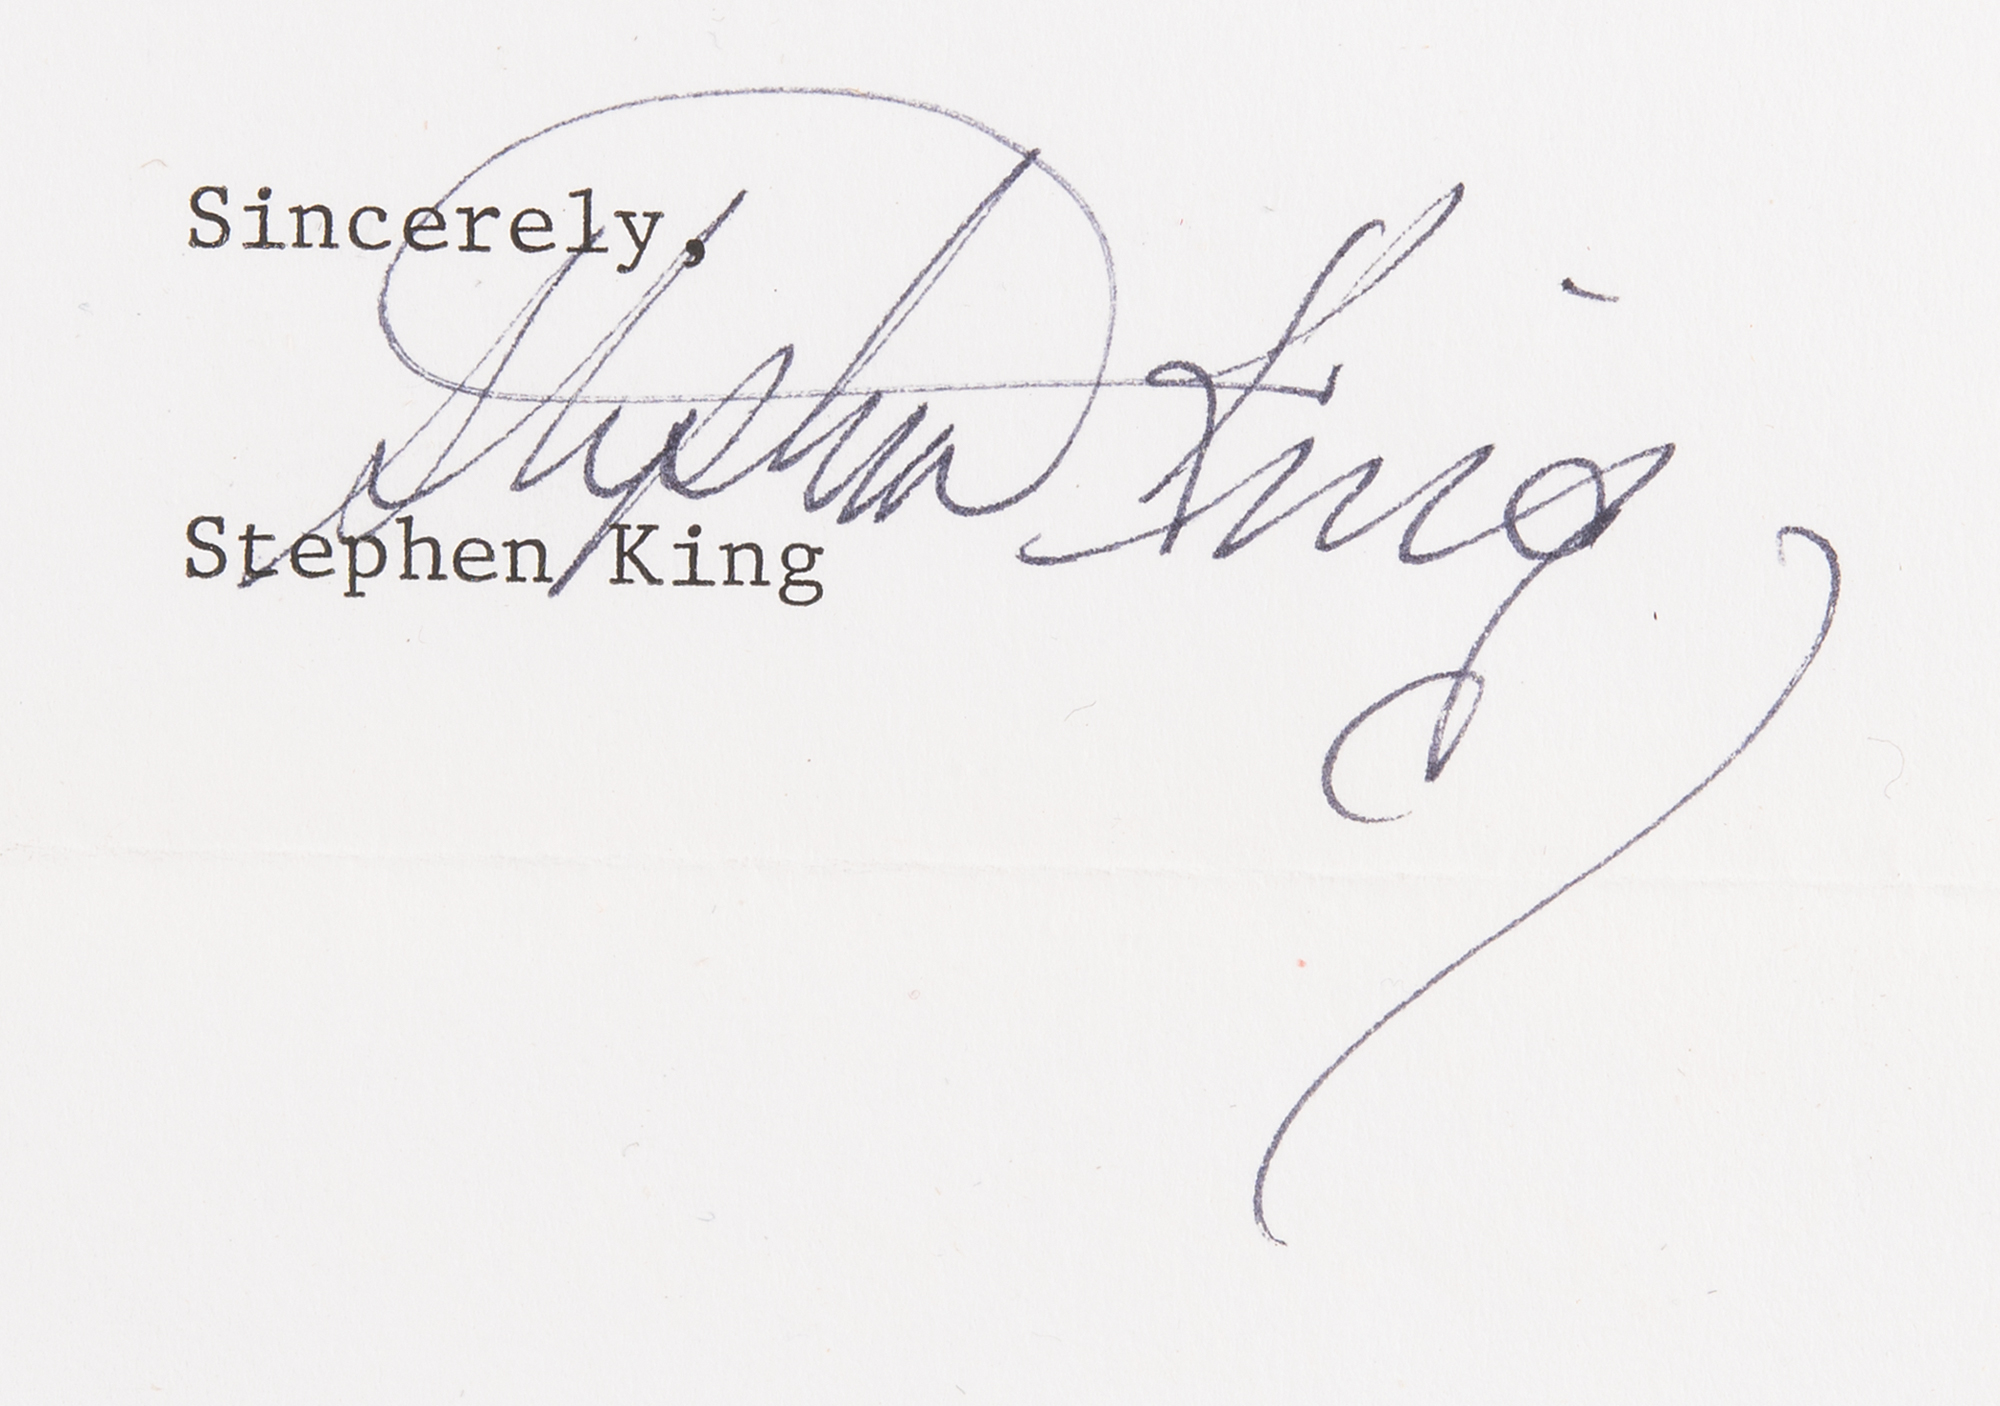 Sincerely,
Stephen King
Stephen King